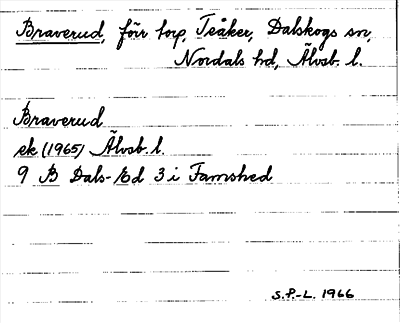 Braverud, förr torp, Tisåker, Dalskogs sn,
Nordals hd, Älvsb. l.
Braverud
ek (1965) Älvsb. l.
9 B Dals-Ed 3 i Famshed
S.P.-L. 1966